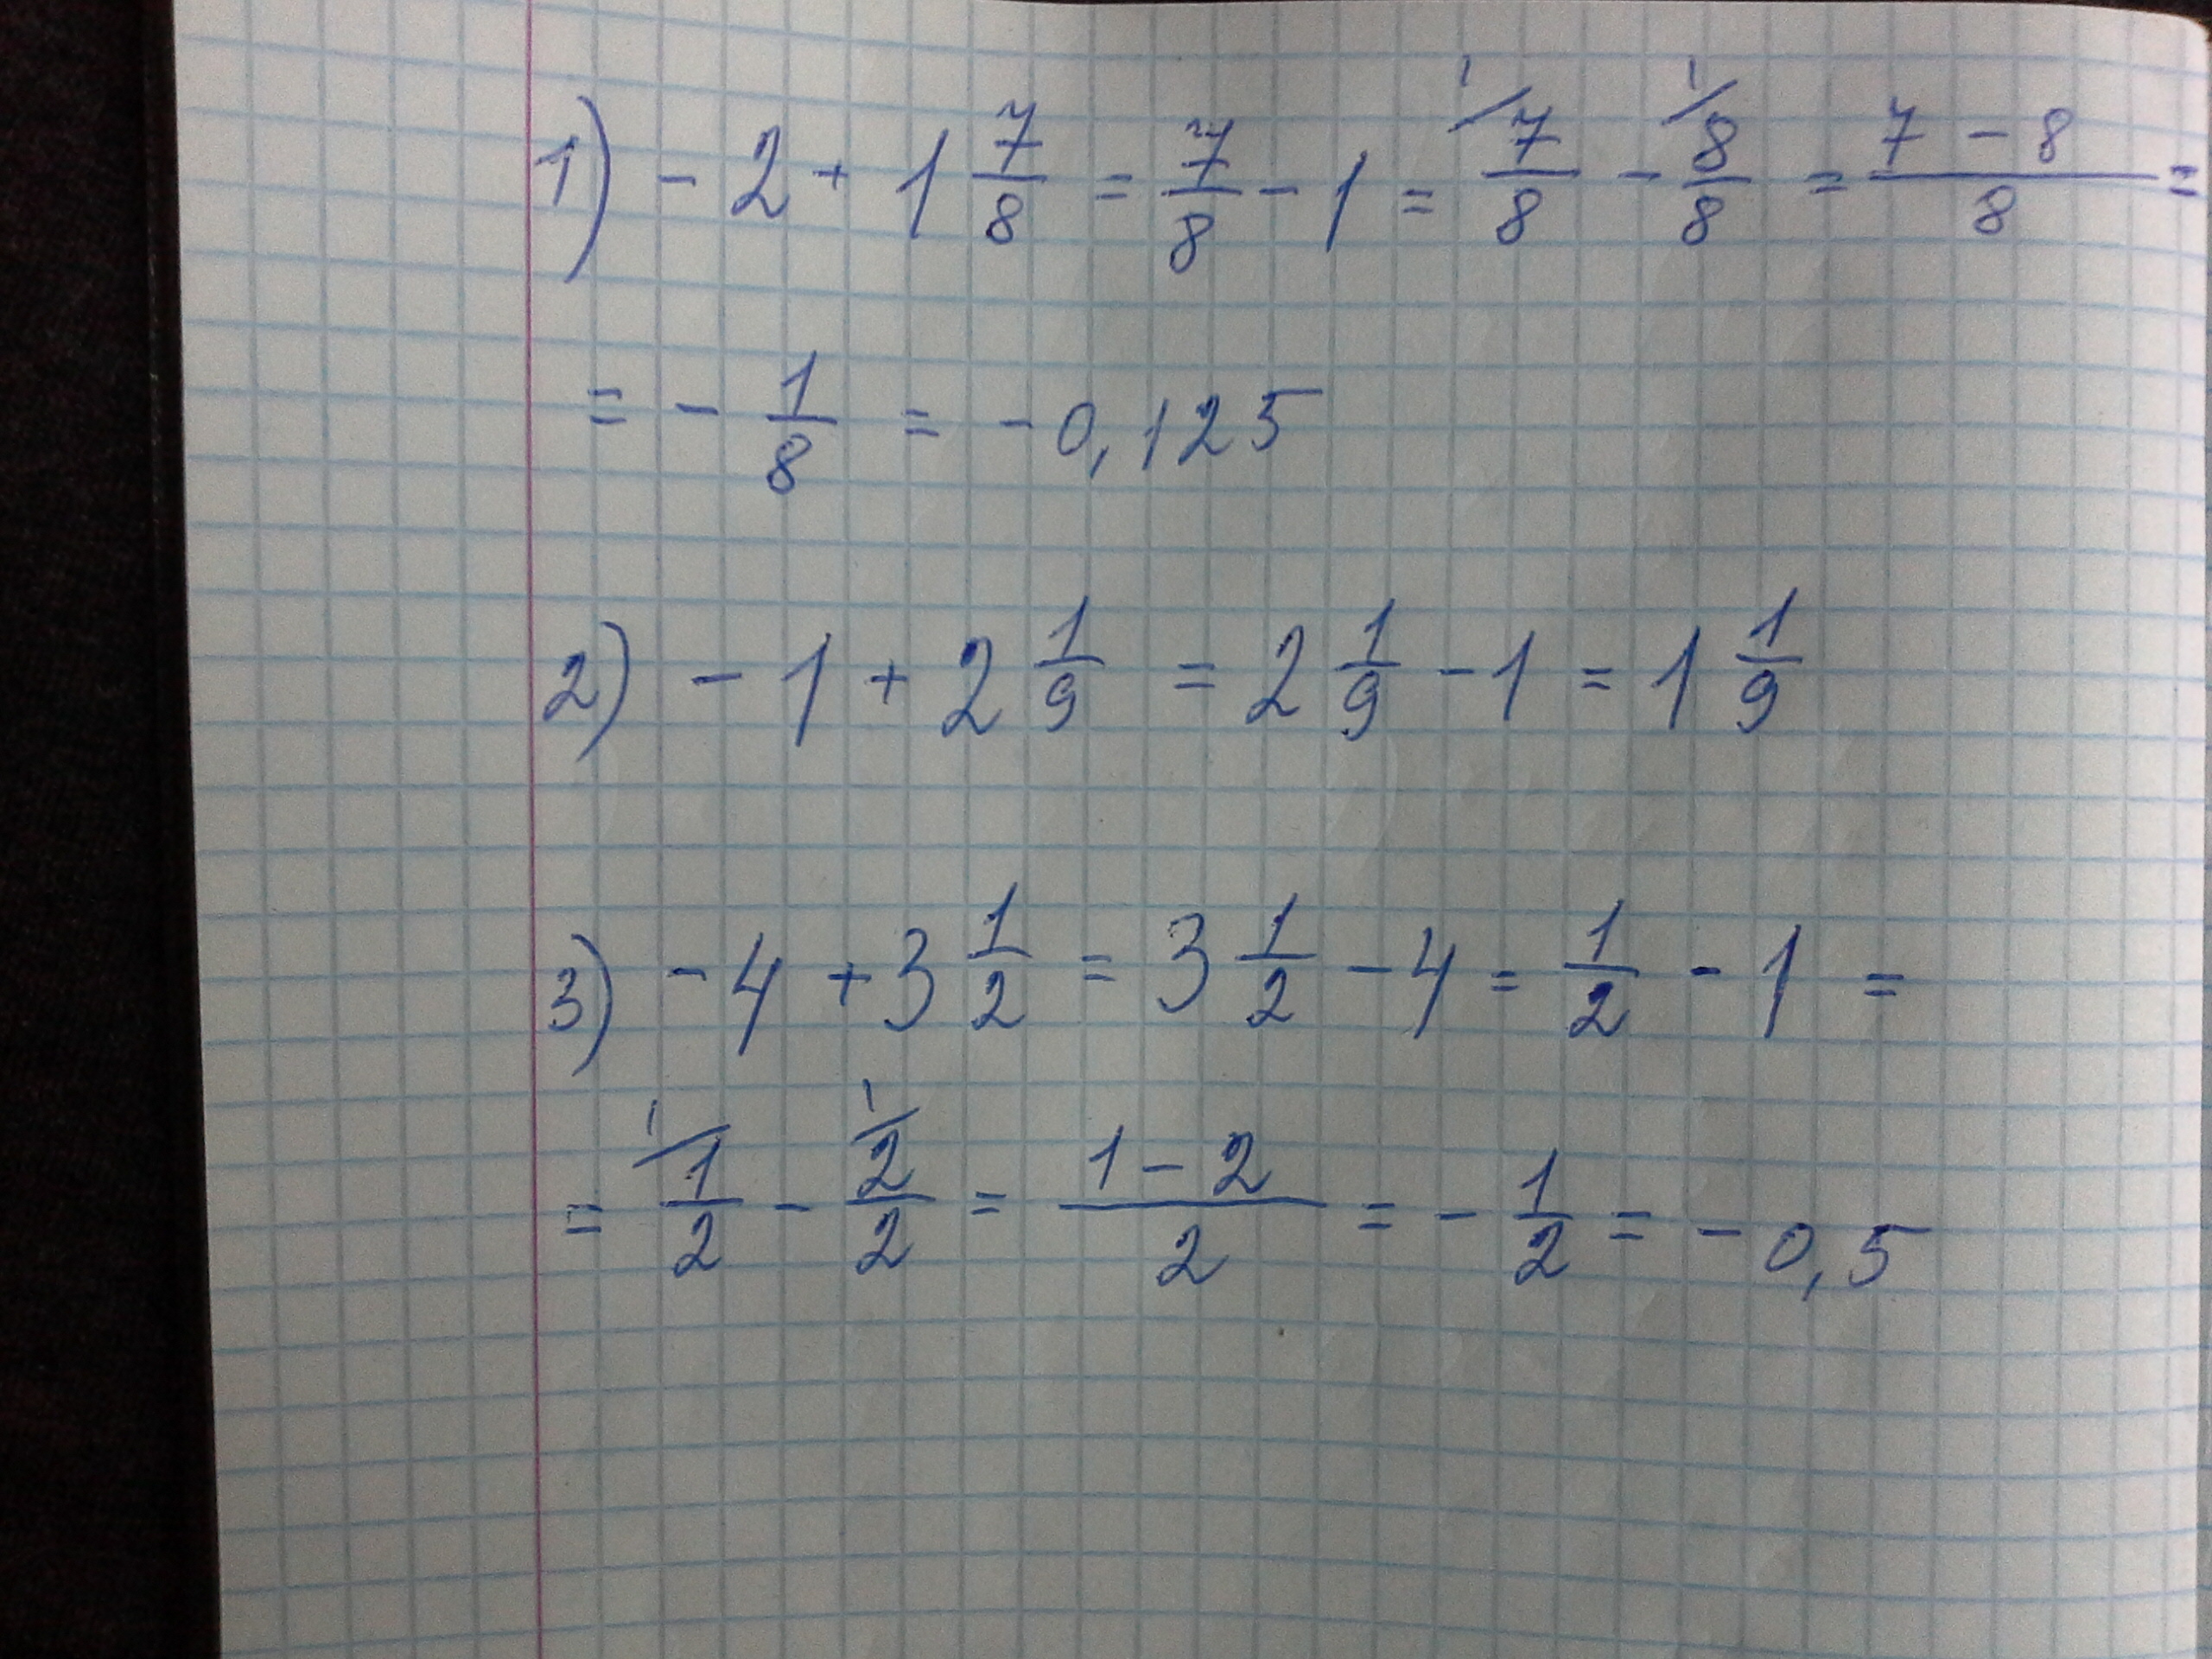 1) - 2 + 1 7/8 = 7/8 - 1 = ¹⁄ 7/8 - ¹⁄ 8/8 = (7 - 8)/8 =
= - 1/8 = - 0,125
2) - 1 + 2 1/9 = 2 1/9 - 1 = 1 1/9
3) - 4 + 3 1/2 = 3 1/2 - 4 = 1/2 - 1 =
= ¹⁄ 1/2 - ¹⁄ 2/2 = (1 - 2)/2 = - 1/2 = - 0,5